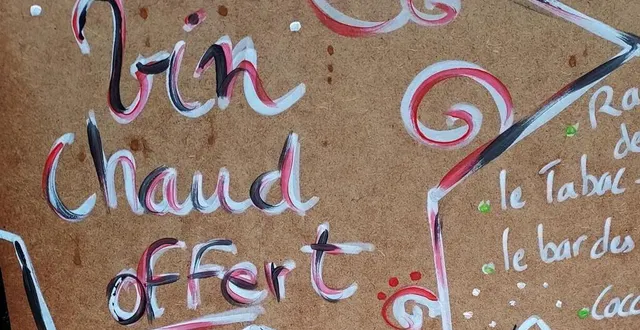 Vin
chaud
offert
le Tabac
le bar des